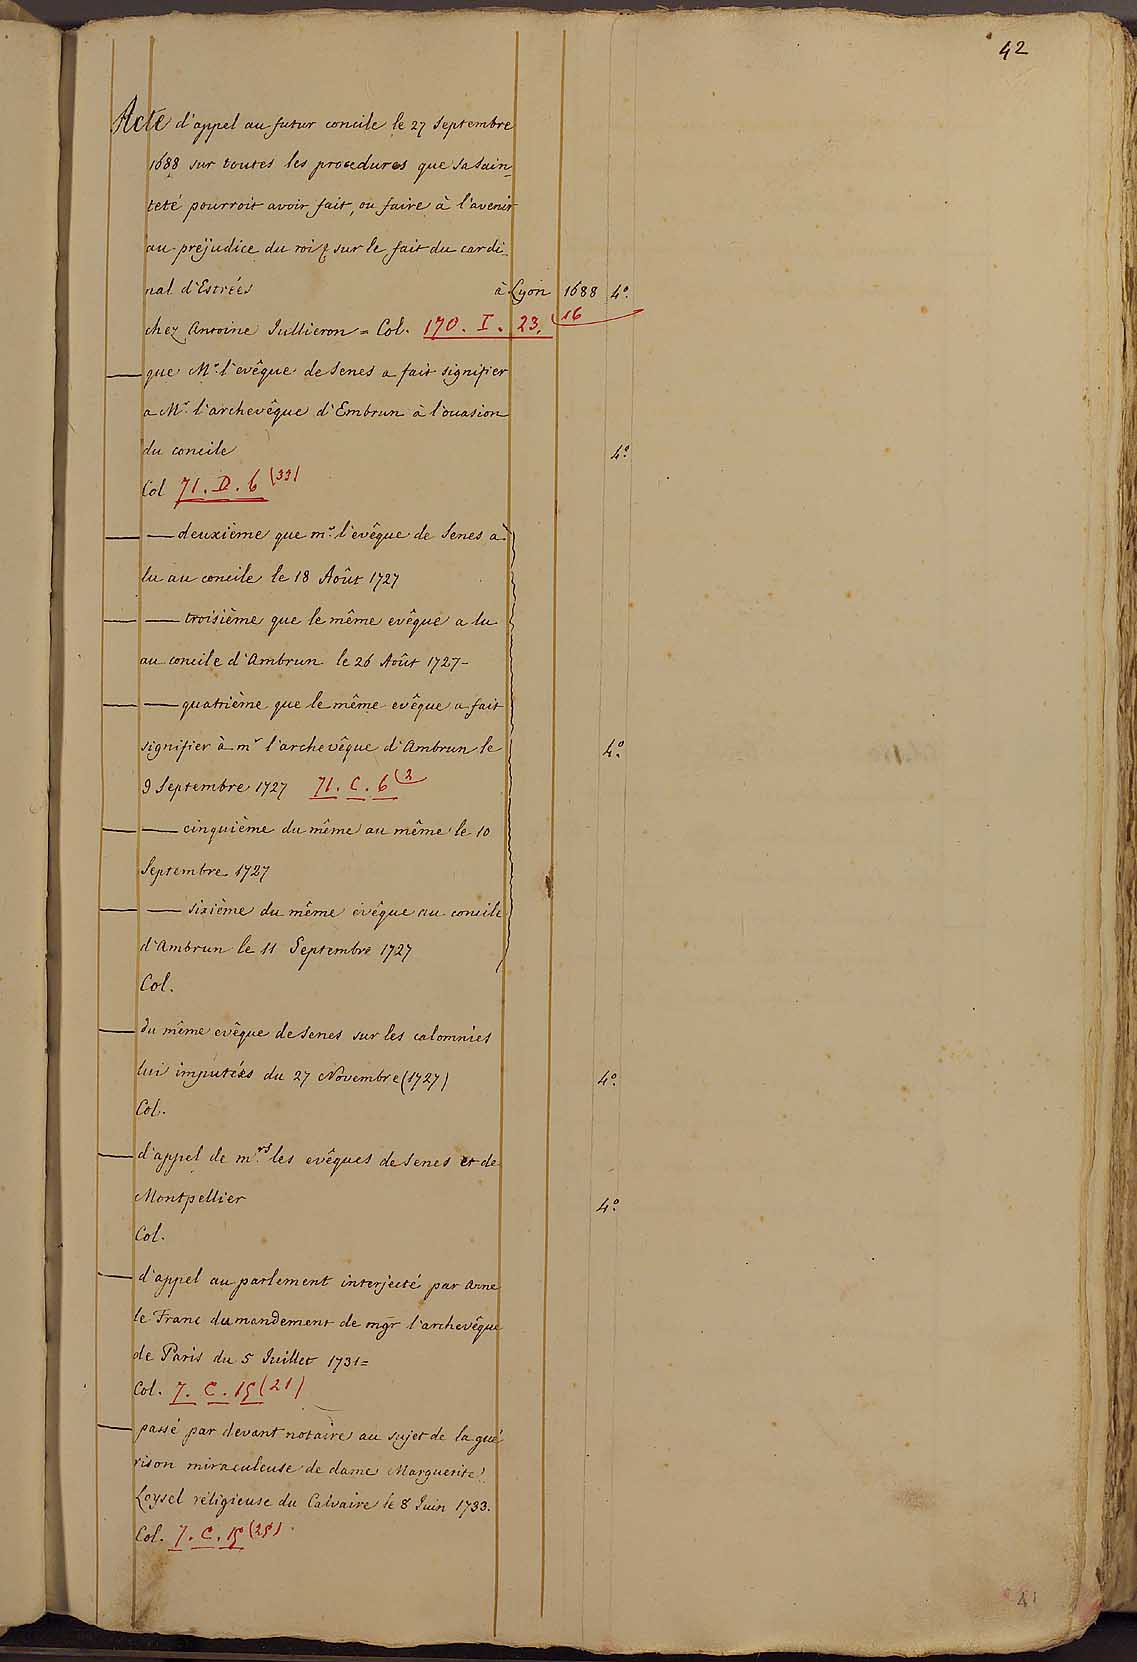 42
Acte d'appel au futur concile le 27 Septembre
1688 sur toutes les procedures que sa Sain-
teté pourroit avoir fait, ou faire à l'avenir
au prejudice du roi & sur le fait du cardi-
nal d'Estrées à Lyon 1688 4°.
chez Antoine Jullieron = Col. 170. I. 23. (16
— que Mr. l'evêque de Senes a fait signifier
a Mr. l'archevêque d'Embrun à l'ocasion
du concile 4°.
Col 71. D. 6 (33)
— — deuxième que mr. l'evêque de Senes a
lu au concile le 18 Août 1727
— — troisième que le même evêque a lu
au concile d'Ambrun le 26 Août 1727-
— — quatrième que le même evêque a fait
signifier à mr l'archevêque d'Ambrun le 4°.
9 Septembre 1727 71. C. 6 (2
— — cinquième du même au même le 10
Septembre 1727
— — sixième du même evêque au concile
d'Ambrun le 11 Septembre 1727
Col.
— du même evêque de Senes sur les calomnies
lui imputées du 27 Novembre (1727) 4°.
Col.
— d'appel de mrs. les evêques de Senes et de
Montpellier 4°.
Col.
— d'appel au parlement interjecté par Anne
le Franc du mandement de mgr l'archevêque
de Paris du 5 Juillet 1731=
Col. 7. C. 15 (21)
— passé par devant notaire au sujet de la gué
rison miraculeuse de dame Marguerite
Loysel réligieuse du Calvaire le 8 Juin 1733.
Col. 7. C. 15 (25)
41